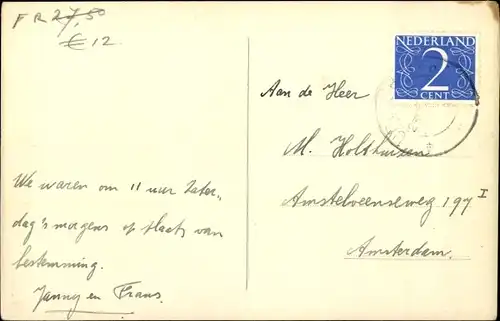 F R 27,50
€ 12.
NEDERLAND
2
CENT
Aan de Heer
M. Holthuizen
Amstelveenseweg 197 I
Amsterdam.
We waren om 11 uur Zater-
dag's morgens op plaats van
bestemming.
Janny en Frans.